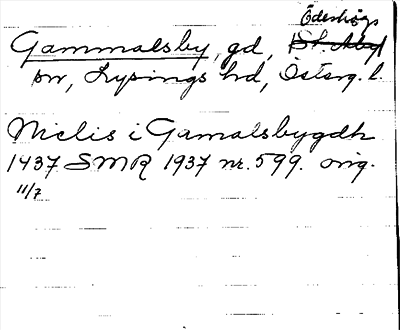 Ödeshögs
Gammalsby, gd, St. Åby
sn, Lysings hd, Österg. l.
Niclis i Gamalsbygdh
1437 SMR 1937 nr. 599. orig.
11/7